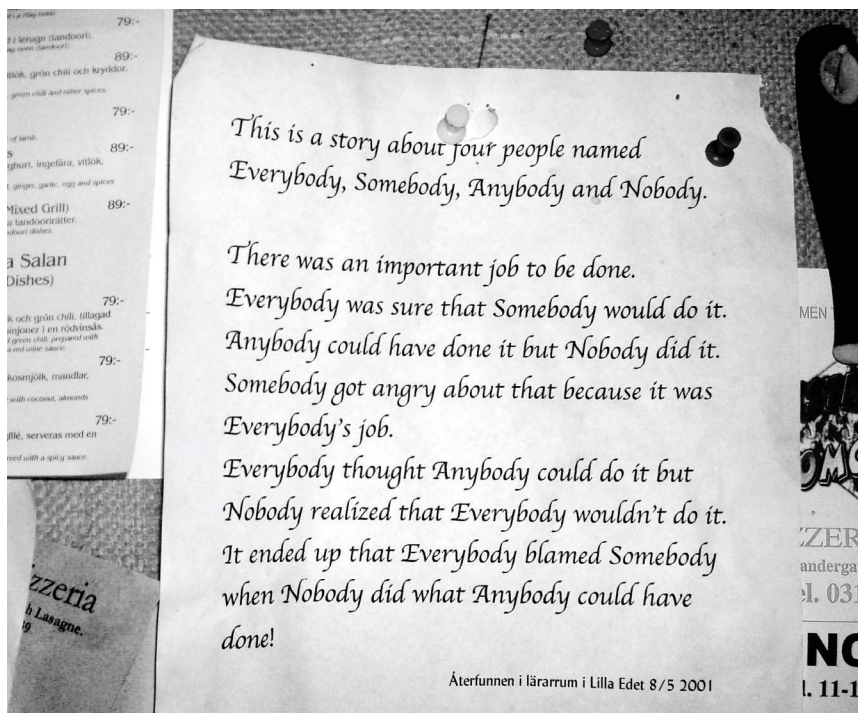 79:-
i lerugn (tandoori).
89:-
grön chili och kryddor.
green chili and other spices.
79:-
of lamb.
89:-
ingefära, vitlök,
ginger, garlic, egg and spices
Mixed Grill) 89:-
a tandoorirätter.
dishes.
a Salan
Dishes)
79:-
k och grön chili, tillagad
i en rödvinsås.
green chili, prepared with
a red wine sauce.
79:-
kosmjölk, mandlar,
with coconut, almonds
79:-
serveras med en
with a spicy sauce.
zzeria
Lasagne.
This is a story about four people named
Everybody, Somebody, Anybody and Nobody.
There was an important job to be done.
Everybody was sure that Somebody would do it.
Anybody could have done it but Nobody did it.
Somebody got angry about that because it was
Everybody's job.
Everybody thought Anybody could do it but
Nobody realized that Everybody wouldn't do it.
It ended up that Everybody blamed Somebody
when Nobody did what Anybody could have
done!
Återfunnen i lärarrum i Lilla Edet 8/5 2001
MEN
ZZER
anderga
el. 031
NO
l. 11-1